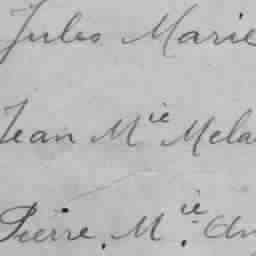 Jules Marie
Jean Mie Mela
Pierre. Mie.